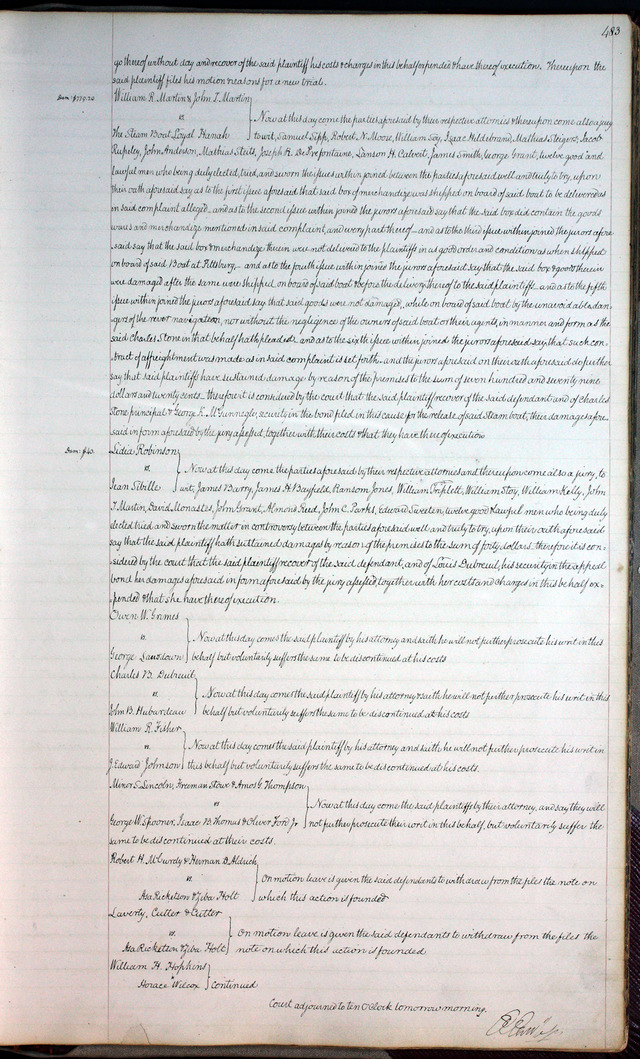 483
go thereof without day and recover of the said plaintiff his costs & charges in this behalf expended & have thereof execution. Thereupon the
said plaintiff files his motion & reasons for a new trial.
Dam: $779.20 William R. Martin & John T. Martin
vs Now at this day come the parties aforesaid by their respective attornies & thereupon come also a jury
The Steam Boat Loyal Hanah to wit, Samuel Sipp, Robert N. Moore, William Foy, Isaac Hildebrand, Mathias Steigers, Jacob
Rupeley, John Anderson, Mathias Steits, Joseph R. De Prefontaine, Lanson H. Culveit, James Smith, George Grant, twelve good and
lawful men who being duly elected, tried, and sworn the issues within joined between the parties aforesaid well and truly to try, upon
their oath aforesaid say as to the first issue aforesaid that said box of merchandize was shipped on board of said boat to be delivered as
in said complaint alleged. and as to the second issue within joined the jurors aforesaid say that the said box did contain the goods
wares and merchandize mentioned in said complaint, and every part thereof. and as to the third issue within joined the jurors afore
said say that the said box & merchandize therein were not delivered to the plaintiffs in as good order and condition as when shipped
on board of said Boat at Pittsburg. and as to the fourth issue within joined the jurors aforesaid say that the said box & goods therein
were damaged after the same were shipped on board of said boat & before the delivery thereof to the said plaintiffs. and as to the fifth
issue within joined the jurors aforesaid say that said goods were not damaged, while on board of said boat by the unavoidable dan-
gers of the river navigation, nor without the negligence of the owners of said boat or their agents, in manner and form as the
said Charles Stone in that behalf hath pleaded. and as to the sixth issue within joined the jurors aforesaid say that such con-
tract of affreightment was made as in said complaint is set forth. and the jurors aforesaid on their oath aforesaid do further
say that said plaintiffs have sustained damage by reason of the premises to the sum of seven hundred and seventy nine
dollars and twenty cents. therefore it is considered by the court that the said plaintiffs recover of the said defendant and of Charles
Stone principal & George K. McGunnegle, security in the bond filed in this cause for the release of said Steam boat, their damages afore-
said in form aforesaid by the jury assessed, together with their costs & that they have thereof execution
Dam: $40. Lidia Robinson
vs. Now at this day come the parties aforesaid by their respective attornies and thereupon come also a jury, to
Jean Sibille wit, James Barry, James H. Bayfield, Ransom Jones, William Triplett, William Stoy, William Kelly, John
T. Martin, David Monastes, John Grant, Almond Reed, John C. Parks, Edward Sweeten, twelve good & lawful men who being duly
elected tried and sworn the matter in controversy between the parties aforesaid well and truly to try, upon their oath aforesaid
say that the said plaintiff hath sustained damages by reason of the premises to the sum of forty dollars. therefore it is con-
sidered by the court that the said plaintiff recover of the said defendant, and of Louis Dubreuil, his security in the appeal
bond her damages aforesaid in form aforesaid by the jury assessed, together with her costs and charges in this behalf ex-
pended & that she have thereof execution.
Owen W. Grimes
vs. Now at this day comes the said plaintiff by his attorney and saith he will not further prosecute his writ in this
George Lansdown behalf but voluntarily suffers the same to be discontinued at his costs
Charles B. Dubreuil
vs. Now at this day comes the said plaintiff by his attorney & saith he will not further prosecute his writ in this
John B. Hubardeau behalf but voluntarily suffers the same to be discontinued at his costs
William R. Fisher
vs. Now at this day comes the said plaintiff by his attorney and saith he will not further prosecute his writ in
J. Edward Johnson this behalf but voluntarily suffers the same to be discontinued at his costs.
Miner S. Lincoln, Freeman Stowe & Amos G. Thompson
vs Now at this day come the said plaintiffs by their attorney, and say they will
George W. Spooner, Isaac B. Thomas & Oliver Ford Jr not further prosecute their writ in this behalf, but voluntarily suffer the
same to be discontinued at their costs.
Robert H. McCurdy & Herman D. Aldrich
vs. On motion leave is given the said defendants to withdraw from the files the note on
Asa Ricketson & Ziba Holt which this action is founded
Laverty, Cutter & Cutter
vs. On motion leave is given the said defendants to withdraw from the files the
Asa Ricketson & Ziba Holt note on which this action is founded
William H. Hopkins
Horace Wilcox Continued
Court adjourned to ten O'Clock tomorrow morning.